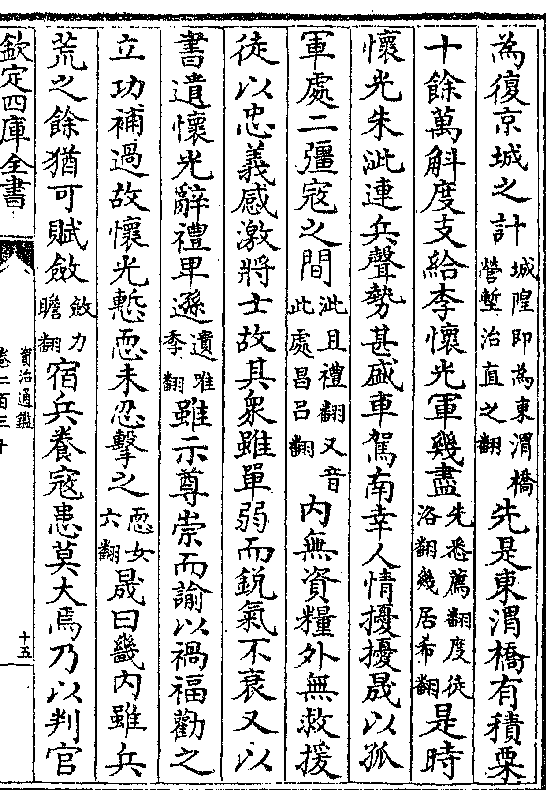 為復京城之計城隍即為東渭橋營塹治直之翻先是東渭橋有積粟
十餘萬斛度支給李懷光軍幾盡先悉薦翻度徒洛翻幾居希翻是時
懷光朱泚連兵聲勢甚盛車駕南幸人情擾擾晟以孤
軍處二彊寇之間泚且禮翻又音此處昌呂翻內無資糧外無救援
徒以忠義感激將士故其衆雖單弱而銳氣不衰又以
書遺懷光辭禮卑遜遺唯季翻雖示尊崇而諭以禍福勸之
立功補過故懷光慙恧未忍擊之恧女六翻晟曰畿內雖兵
荒之餘猶可賦斂斂力贍翻宿兵養寇患莫大焉乃以判官
欽定四庫全書
資治通鑑
卷二百三十
十五